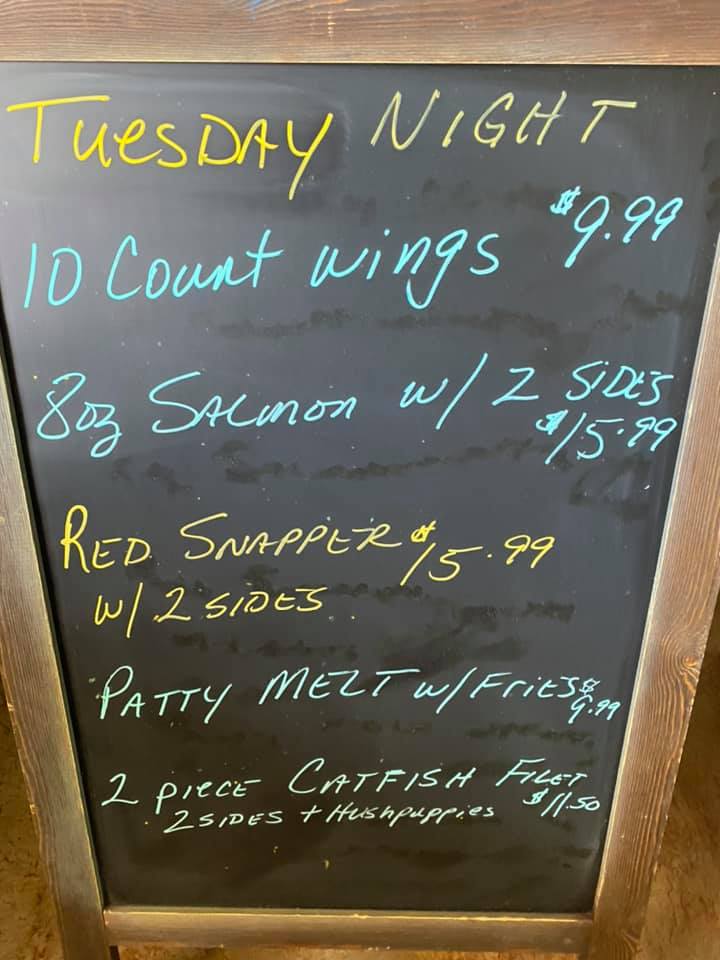 TuesDAY NIGHT
10 Count wings $9.99
8oz SALMON w/ 2 SiDES
$15.99
RED SNAPPER $15.99
W/ 2 SIDES
PATTY MELT w/ FriES $9.99
2 piece CATFISH FILET
2 SIDES + Hushpuppies $11.50